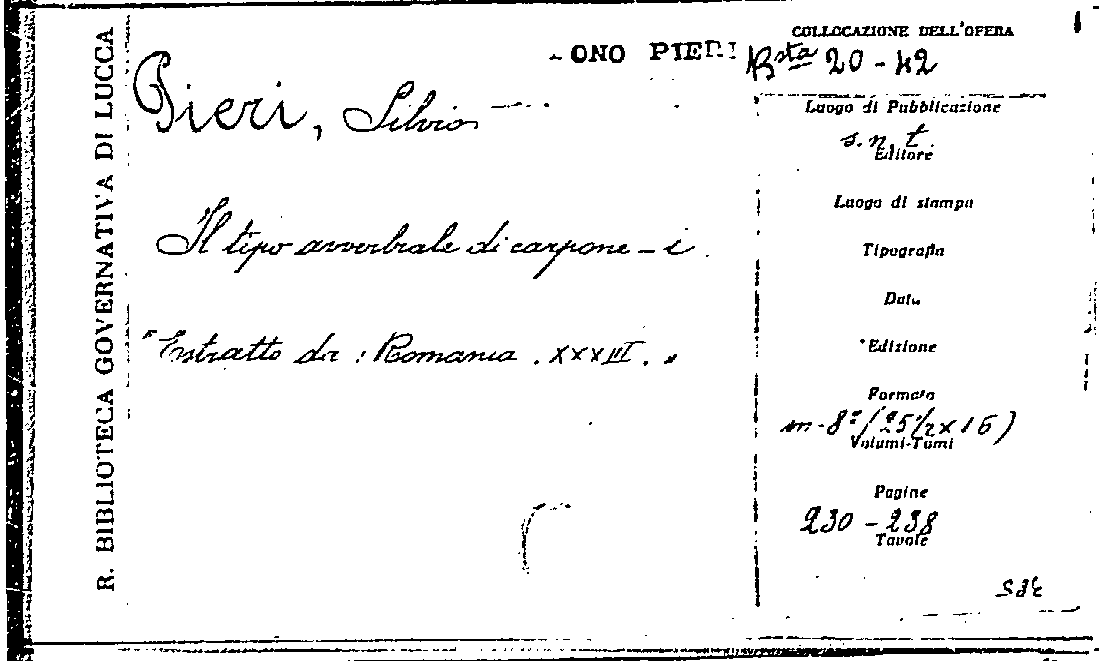 R. BIBLIOTECA GOVERNATIVA DI LUCCA
ONO PIERI
Pieri, Silvio
Il tipo avverbiale di carpone - i
"Estratto da: Romania. XXXIII."
COLLOCAZIONE DELL'OPERA
Bsta 20-42
Luogo di Pubblicazione
s. n. t.
Editore
Luogo di stampa
Tipografia
Data
Edizione
Formato
in-8º (25 1/2 x 16)
Volumi-Tomi
Pagine
230-238
Tavole